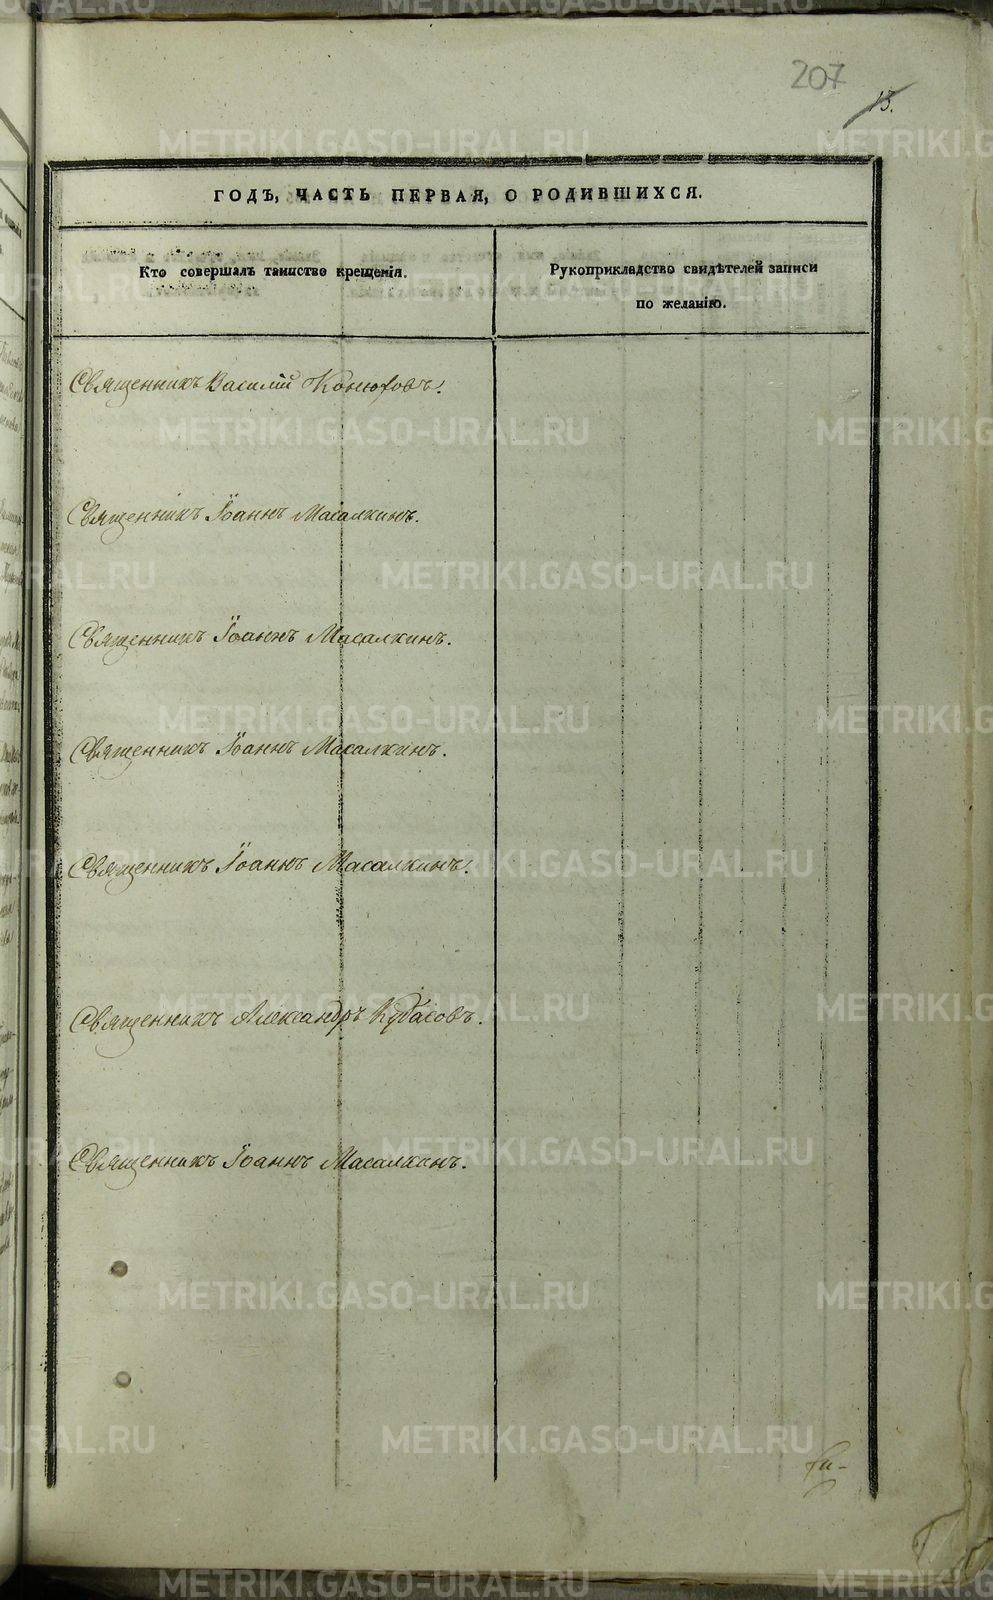 207
13.
ГОДЪ, ЧАСТЬ ПЕРВАЯ, О РОДИВШИХСЯ.
Кто совершалъ таинство крещенія.
Рукоприкладство свидѣтелей записи
по желанію.
Священникъ Василій Конюховъ.
Священникъ Іоаннъ Масалкинъ.
Священникъ Іоаннъ Масалкинъ.
Священникъ Іоаннъ Масалкинъ.
Священникъ Іоаннъ Масалкинъ.
Священникъ Александръ Кубасовъ.
Священникъ Іоаннъ Масалкинъ.
METRIKI.GASO-URAL.RU